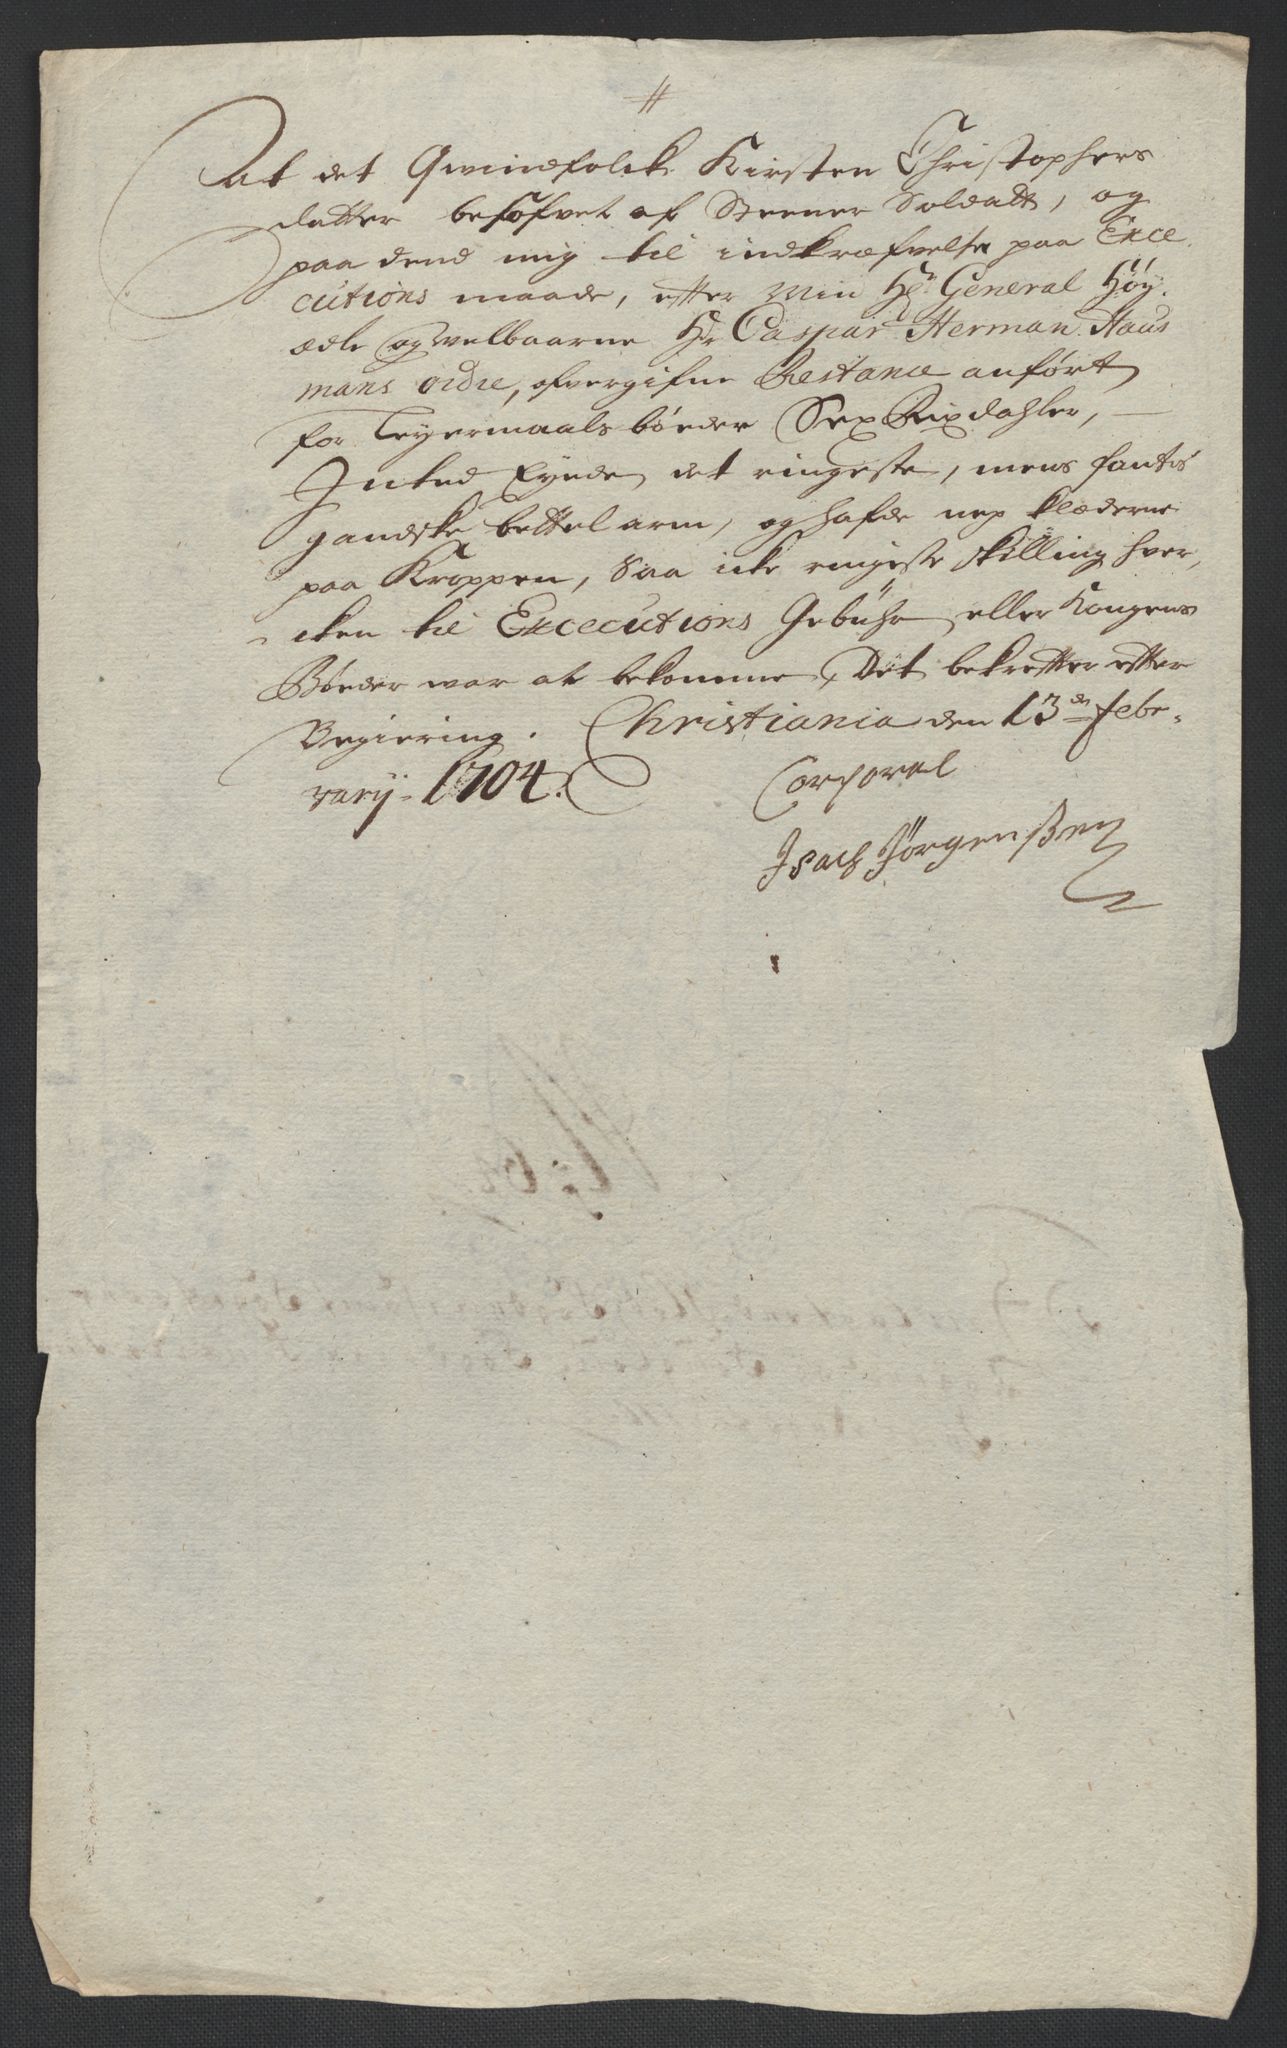 At det Qvindfolck Kirsten Christophers
datter besofvet af Steener Soldatt, og
paa dend mig til indkræfvelse paa Exce
cutions maade, efter Min Hr. General Høy.
ædle og velbaarne Hr Caspar Herman Haus
mans ordre, ofvergifne Restance anført
for Leyermaals bøeder Sex Rixdahler,
Inted Eyede det ringeste, mens fantis
gandske bettel arm, og hafde nep klæderne
paa Kroppen, Saa icke ringeste skilling hver,
cken til Excecutions Gebühr eller Kongens
Bøeder war at bekomme, Det bekrefter efter
Begiering. Christiania den 13de Febr-
vary 1704.
Corporal
Isach Jørgensßen